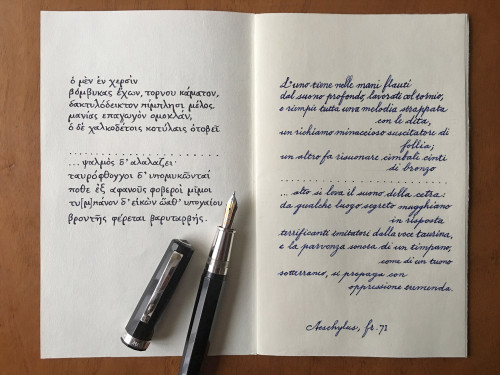 ὁ μὲν ἐν χερσὶν
βόμβυκας ἔχων, τόρνου κάματον,
δακτυλόδεικτον πίμπλησι μέλος,
μανίας ἐπαγωγὸν ὁμοκλάν,
ὁ δὲ χαλκοδέτοις κοτύλαις ὀτοβεῖ
. . . . . . . . . . . . . . . . . . . .
... ψαλμὸς δ' ἀλαλάζει·
ταυρόφθογγοι δ' ὑπομυκῶνται
ποθε ἐξ ἀφανοῦς φοβεροὶ μῖμοι
τυ[μ]πάνου δ' εἰκὼν ὥσθ' ὑπογαίου
βροντῆς φέρεται βαρυταρβής.
L'uno tiene nelle mani flauti
dal suono profondo, lavorati col tornio,
e riempie tutta una melodia strappata
con le dita,
un richiamo minaccioso suscitatore di
follia;
un altro fa risuonare cimbali cinti
di bronzo
. . . . . . . . . . . . . . . . . . . .
... alto si leva il suono della cetra:
da qualche luogo segreto mugghiano
in risposta
terrificanti imitatori dalla voce taurina,
e la parvenza sonora di un timpano,
come di un tuono
sotterraneo, si propaga con
oppressione tremenda.
Aeschylus, fr. 71